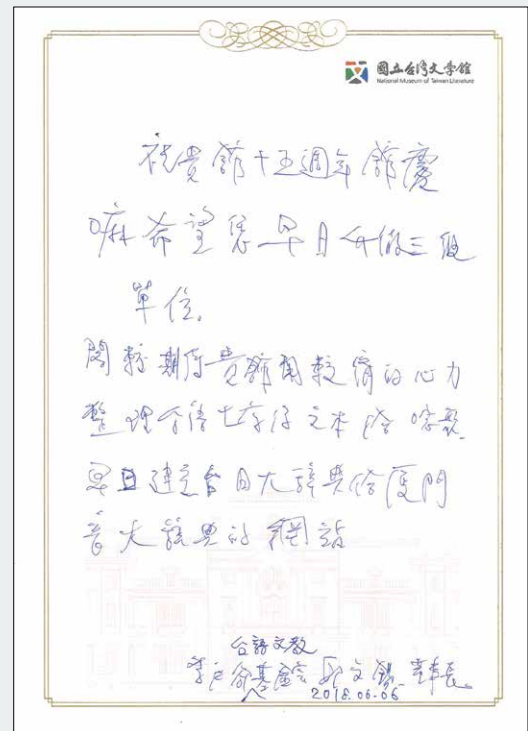 國立台灣文學館
National Museum of Taiwan Literature
祝貴館十五週年館慶
嘛希望恁早日升做三級
單位。
閣較期待貴館用較濟的心力
整理台語七字仔文本
早日建立台日大辭典 廈門
音大辭典的網站
台語文教
基金會 董事長
2018.06.06